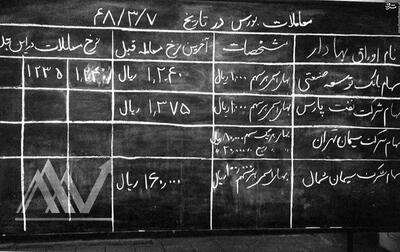 معاملات بورس در تاریخ ۴۸/۳/۷
نام اوراق بهادار مشخصات آخرین نرخ معامله قبل نرخ معاملات در این جلسه
سهام بانک توسعه صنعتی بهای اسمی هر سهم ۱۰۰۰ ریال ۱,۲۴۰ ریال ۱,۲۴۰ ۱۲۳۵
سهام شرکت نفت پارس بهای اسمی هر سهم ۱۰۰۰ ریال ۱,۳۷۵ ریال
سهام شرکت سیمان تهران بهای هر یک سهم ۱۰,۰۰۰ ریال
سهام شرکت سیمان شمال بهای اسمی هر سهم ریال ۱۶۰,۰۰۰ ریال